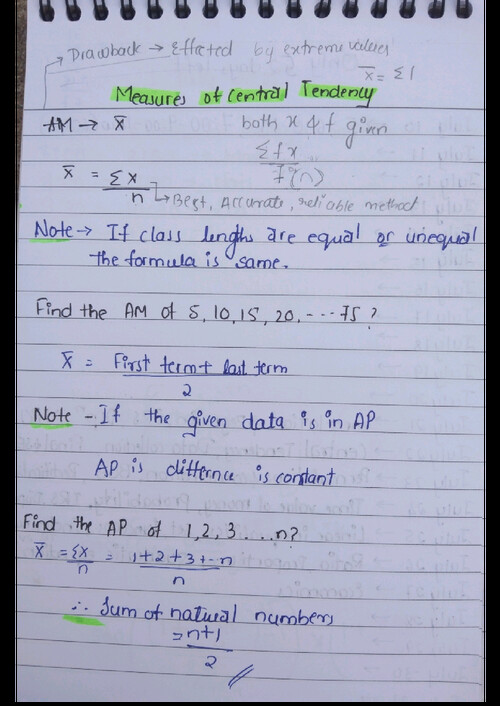 Drawback → Effected by extreme values
x̄ = Σf
Measures of Central Tendency
AM → x̄
both x & f given
Σfx
F(n)
x̄ = Σx
n
→ Best, Accurate, reliable method
Note → If class lengths are equal or unequal
the formula is same.
Find the AM of 5, 10, 15, 20, - - - 75 ?
x̄ = First term + last term
2
Note - If the given data is in AP
AP is differnce is constant
Find the AP of 1, 2, 3 ....n?
x̄ = Σx = 1+2+3+--n
n n
∴ Sum of natural numbers
= n+1
2